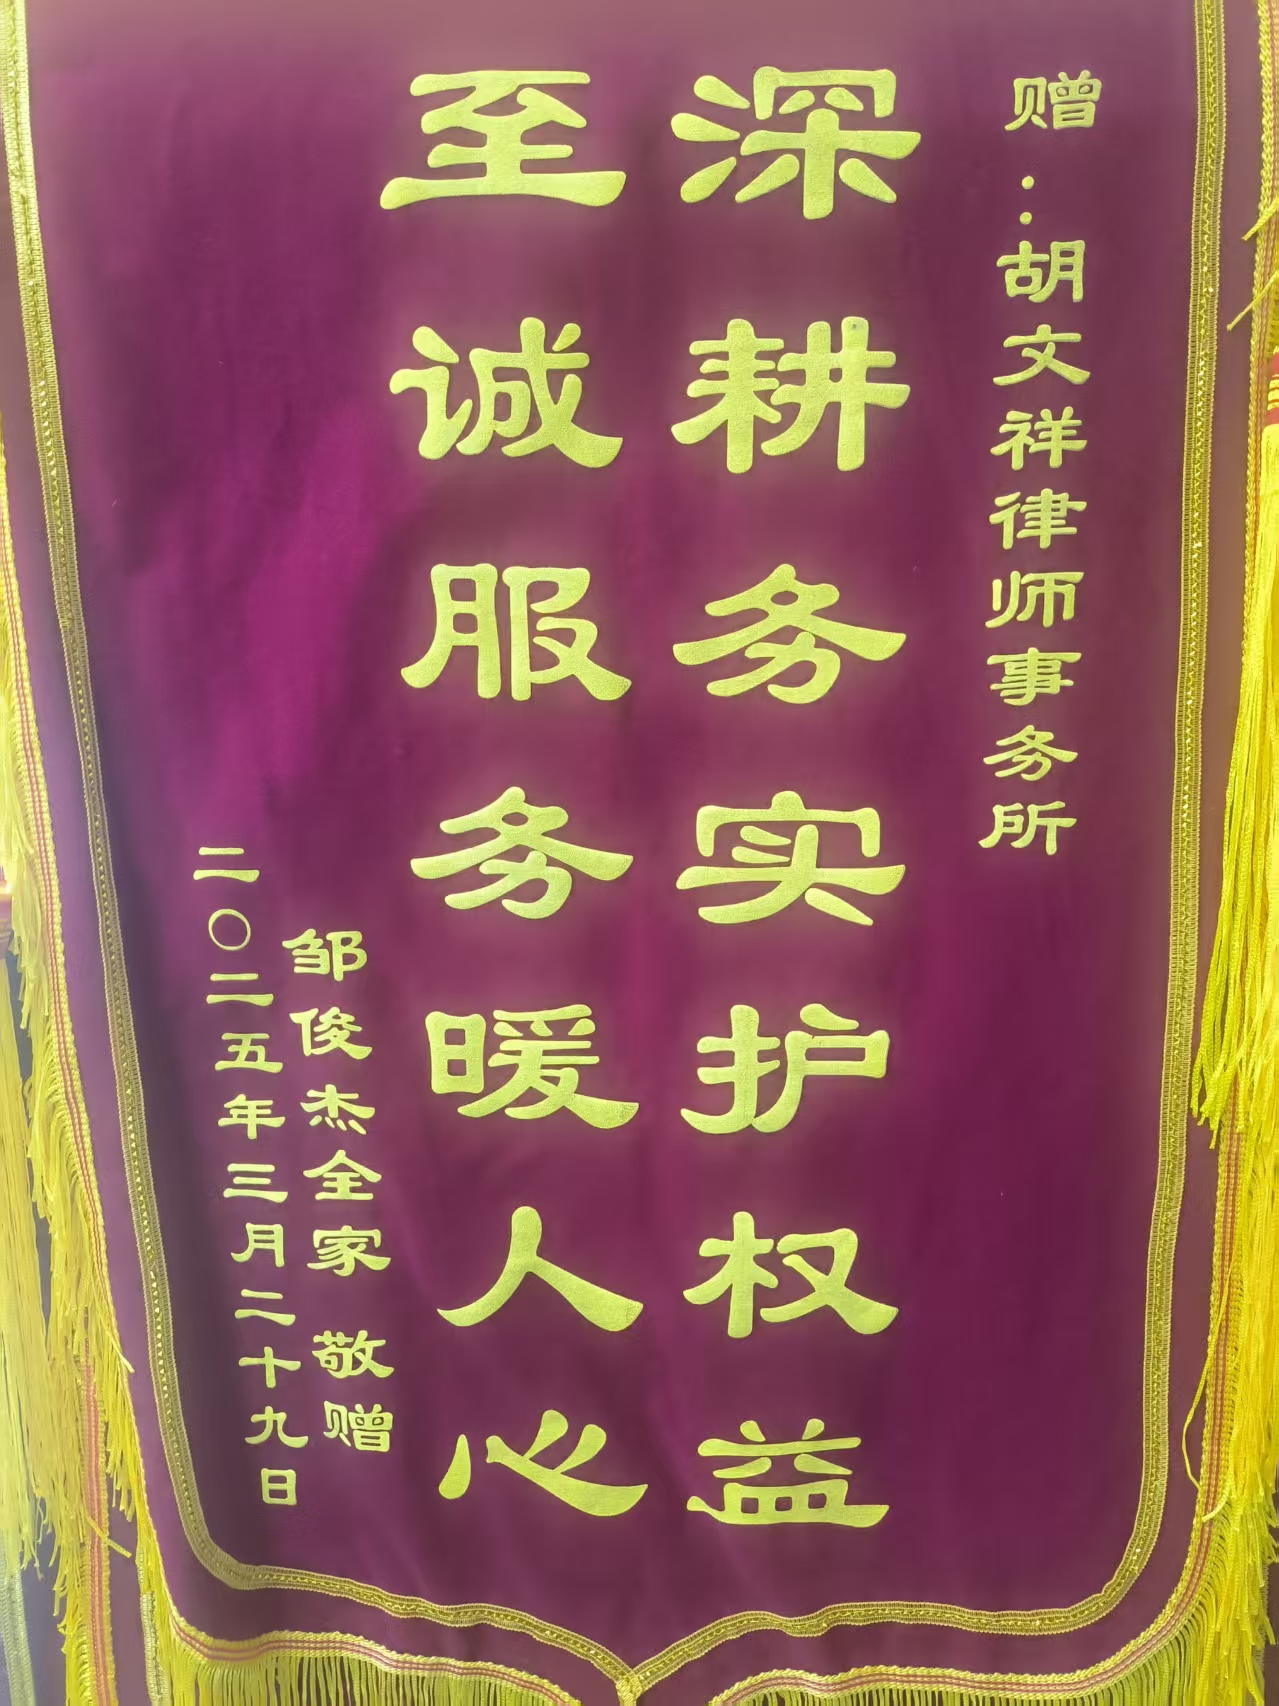 赠：胡文祥律师事务所
深耕务实护权益
至诚服务暖人心
邹俊杰全家 敬赠
二〇二五年三月二十九日